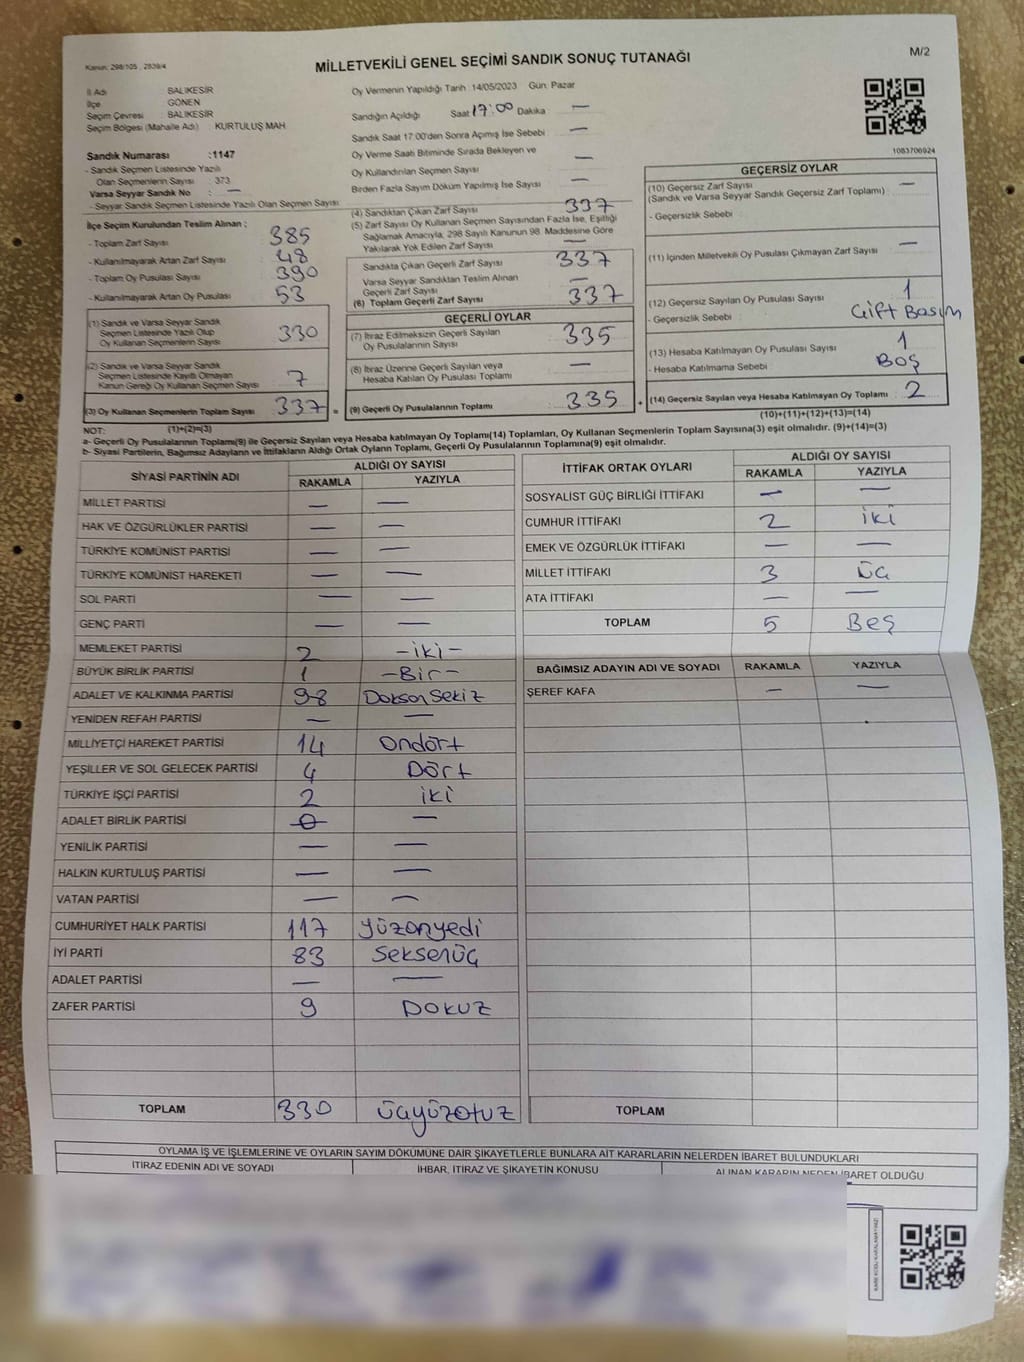 Kanun: 298/105 , 2839/4
MİLLETVEKİLİ GENEL SEÇİMİ SANDIK SONUÇ TUTANAĞI
M/2
İl Adı BALIKESİR
İlçe GÖNEN
Seçim Çevresi BALIKESİR
Seçim Bölgesi (Mahalle Adı) : KURTULUŞ MAH
Sandık Numarası :1147
- Sandık Seçmen Listesinde Yazılı
Olan Seçmenlerin Sayısı : 373
Varsa Seyyar Sandık No : —
- Seyyar Sandık Seçmen Listesinde Yazılı Olan Seçmen Sayısı
İlçe Seçim Kurulundan Teslim Alınan ;
- Toplam Zarf Sayısı 385
- Kullanılmayarak Artan Zarf Sayısı 48
- Toplam Oy Pusulası Sayısı 390
- Kullanılmayarak Artan Oy Pusulası 53
(1) Sandık ve Varsa Seyyar Sandık
Seçmen Listesinde Yazılı Olup
Oy Kullanan Seçmenlerin Sayısı 330
(2) Sandık ve Varsa Seyyar Sandık
Seçmen Listesinde Kayıtlı Olmayan
Kanun Gereği Oy Kullanan Seçmen Sayısı 7
(3) Oy Kullanan Seçmenlerin Toplam Sayısı 337 =
Oy Vermenin Yapıldığı Tarih :14/05/2023 Gün: Pazar
Sandığın Açıldığı Saat 17:00 Dakika —
Sandık Saat 17:00'den Sonra Açımış İse Sebebi —
Oy Verme Saati Bitiminde Sırada Bekleyen ve
Oy Kullandırılan Seçmen Sayısı —
Birden Fazla Sayım Döküm Yapılmış İse Sayısı —
(4) Sandıktan Çıkan Zarf Sayısı 337
(5) Zarf Sayısı Oy Kullanan Seçmen Sayısından Fazla İse, Eşitliği
Sağlamak Amacıyla, 298 Sayılı Kanunun 98. Maddesine Göre
Yakılarak Yok Edilen Zarf Sayısı —
Sandıkta Çıkan Geçerli Zarf Sayısı 337
Varsa Seyyar Sandıktan Teslim Alınan
Geçerli Zarf Sayısı —
(6) Toplam Geçerli Zarf Sayısı 337
GEÇERLİ OYLAR
(7) İtiraz Edilmeksizin Geçerli Sayılan
Oy Pusulalarının Sayısı 335
(8) İtiraz Üzerine Geçerli Sayılan veya
Hesaba Katılan Oy Pusulası Toplamı —
(9) Geçerli Oy Pusulalarının Toplamı 335 +
1083706924
GEÇERSİZ OYLAR
(10) Geçersiz Zarf Sayısı —
(Sandık ve Varsa Seyyar Sandık Geçersiz Zarf Toplamı)
- Geçersizlik Sebebi :
(11) İçinden Milletvekili Oy Pusulası Çıkmayan Zarf Sayısı —
(12) Geçersiz Sayılan Oy Pusulası Sayısı 1
- Geçersizlik Sebebi : Çift Basım
(13) Hesaba Katılmayan Oy Pusulası Sayısı 1
- Hesaba Katılmama Sebebi : Boş
(14) Geçersiz Sayılan veya Hesaba Katılmayan Oy Toplamı : 2
(1)+(2)=(3)
(10)+(11)+(12)+(13)=(14)
NOT:
a- Geçerli Oy Pusulalarının Toplamı(9) ile Geçersiz Sayılan veya Hesaba katılmayan Oy Toplamı(14) Toplamları, Oy Kullanan Seçmenlerin Toplam Sayısına(3) eşit olmalıdır. (9)+(14)=(3)
b- Siyasi Partilerin, Bağımsız Adayların ve İttifakların Aldığı Ortak Oyların Toplamı, Geçerli Oy Pusulalarının Toplamına(9) eşit olmalıdır.
SİYASİ PARTİNİN ADI ALDIĞI OY SAYISI
RAKAMLA YAZIYLA
MİLLET PARTİSİ — —
HAK VE ÖZGÜRLÜKLER PARTİSİ — —
TÜRKİYE KOMÜNİST PARTİSİ — —
TÜRKİYE KOMÜNİST HAREKETİ — —
SOL PARTİ — —
GENÇ PARTİ — —
MEMLEKET PARTİSİ 2 -iki-
BÜYÜK BİRLİK PARTİSİ 1 -Bir-
ADALET VE KALKINMA PARTİSİ 98 Doksan Sekiz
YENİDEN REFAH PARTİSİ — —
MİLLİYETÇİ HAREKET PARTİSİ 14 Ondört
YEŞİLLER VE SOL GELECEK PARTİSİ 4 Dört
TÜRKİYE İŞÇİ PARTİSİ 2 iki
ADALET BİRLİK PARTİSİ 0 —
YENİLİK PARTİSİ — —
HALKIN KURTULUŞ PARTİSİ — —
VATAN PARTİSİ — —
CUMHURİYET HALK PARTİSİ 117 yüzonyedi
İYİ PARTİ 83 Seksenüç
ADALET PARTİSİ — —
ZAFER PARTİSİ 9 Dokuz
TOPLAM 330 üçyüzotuz
İTTİFAK ORTAK OYLARI ALDIĞI OY SAYISI
RAKAMLA YAZIYLA
SOSYALİST GÜÇ BİRLİĞİ İTTİFAKI — —
CUMHUR İTTİFAKI 2 iki
EMEK VE ÖZGÜRLÜK İTTİFAKI — —
MİLLET İTTİFAKI 3 üç
ATA İTTİFAKI — —
TOPLAM 5 Beş
BAĞIMSIZ ADAYIN ADI VE SOYADI RAKAMLA YAZIYLA
ŞEREF KAFA — —
TOPLAM
OYLAMA İŞ VE İŞLEMLERİNE VE OYLARIN SAYIM DÖKÜMÜNE DAİR ŞİKAYETLERLE BUNLARA AİT KARARLARIN NELERDEN İBARET BULUNDUKLARI
İTİRAZ EDENİN ADI VE SOYADI İHBAR, İTİRAZ VE ŞİKAYETİN KONUSU ALINAN KARARIN NEDEN İBARET OLDUĞU